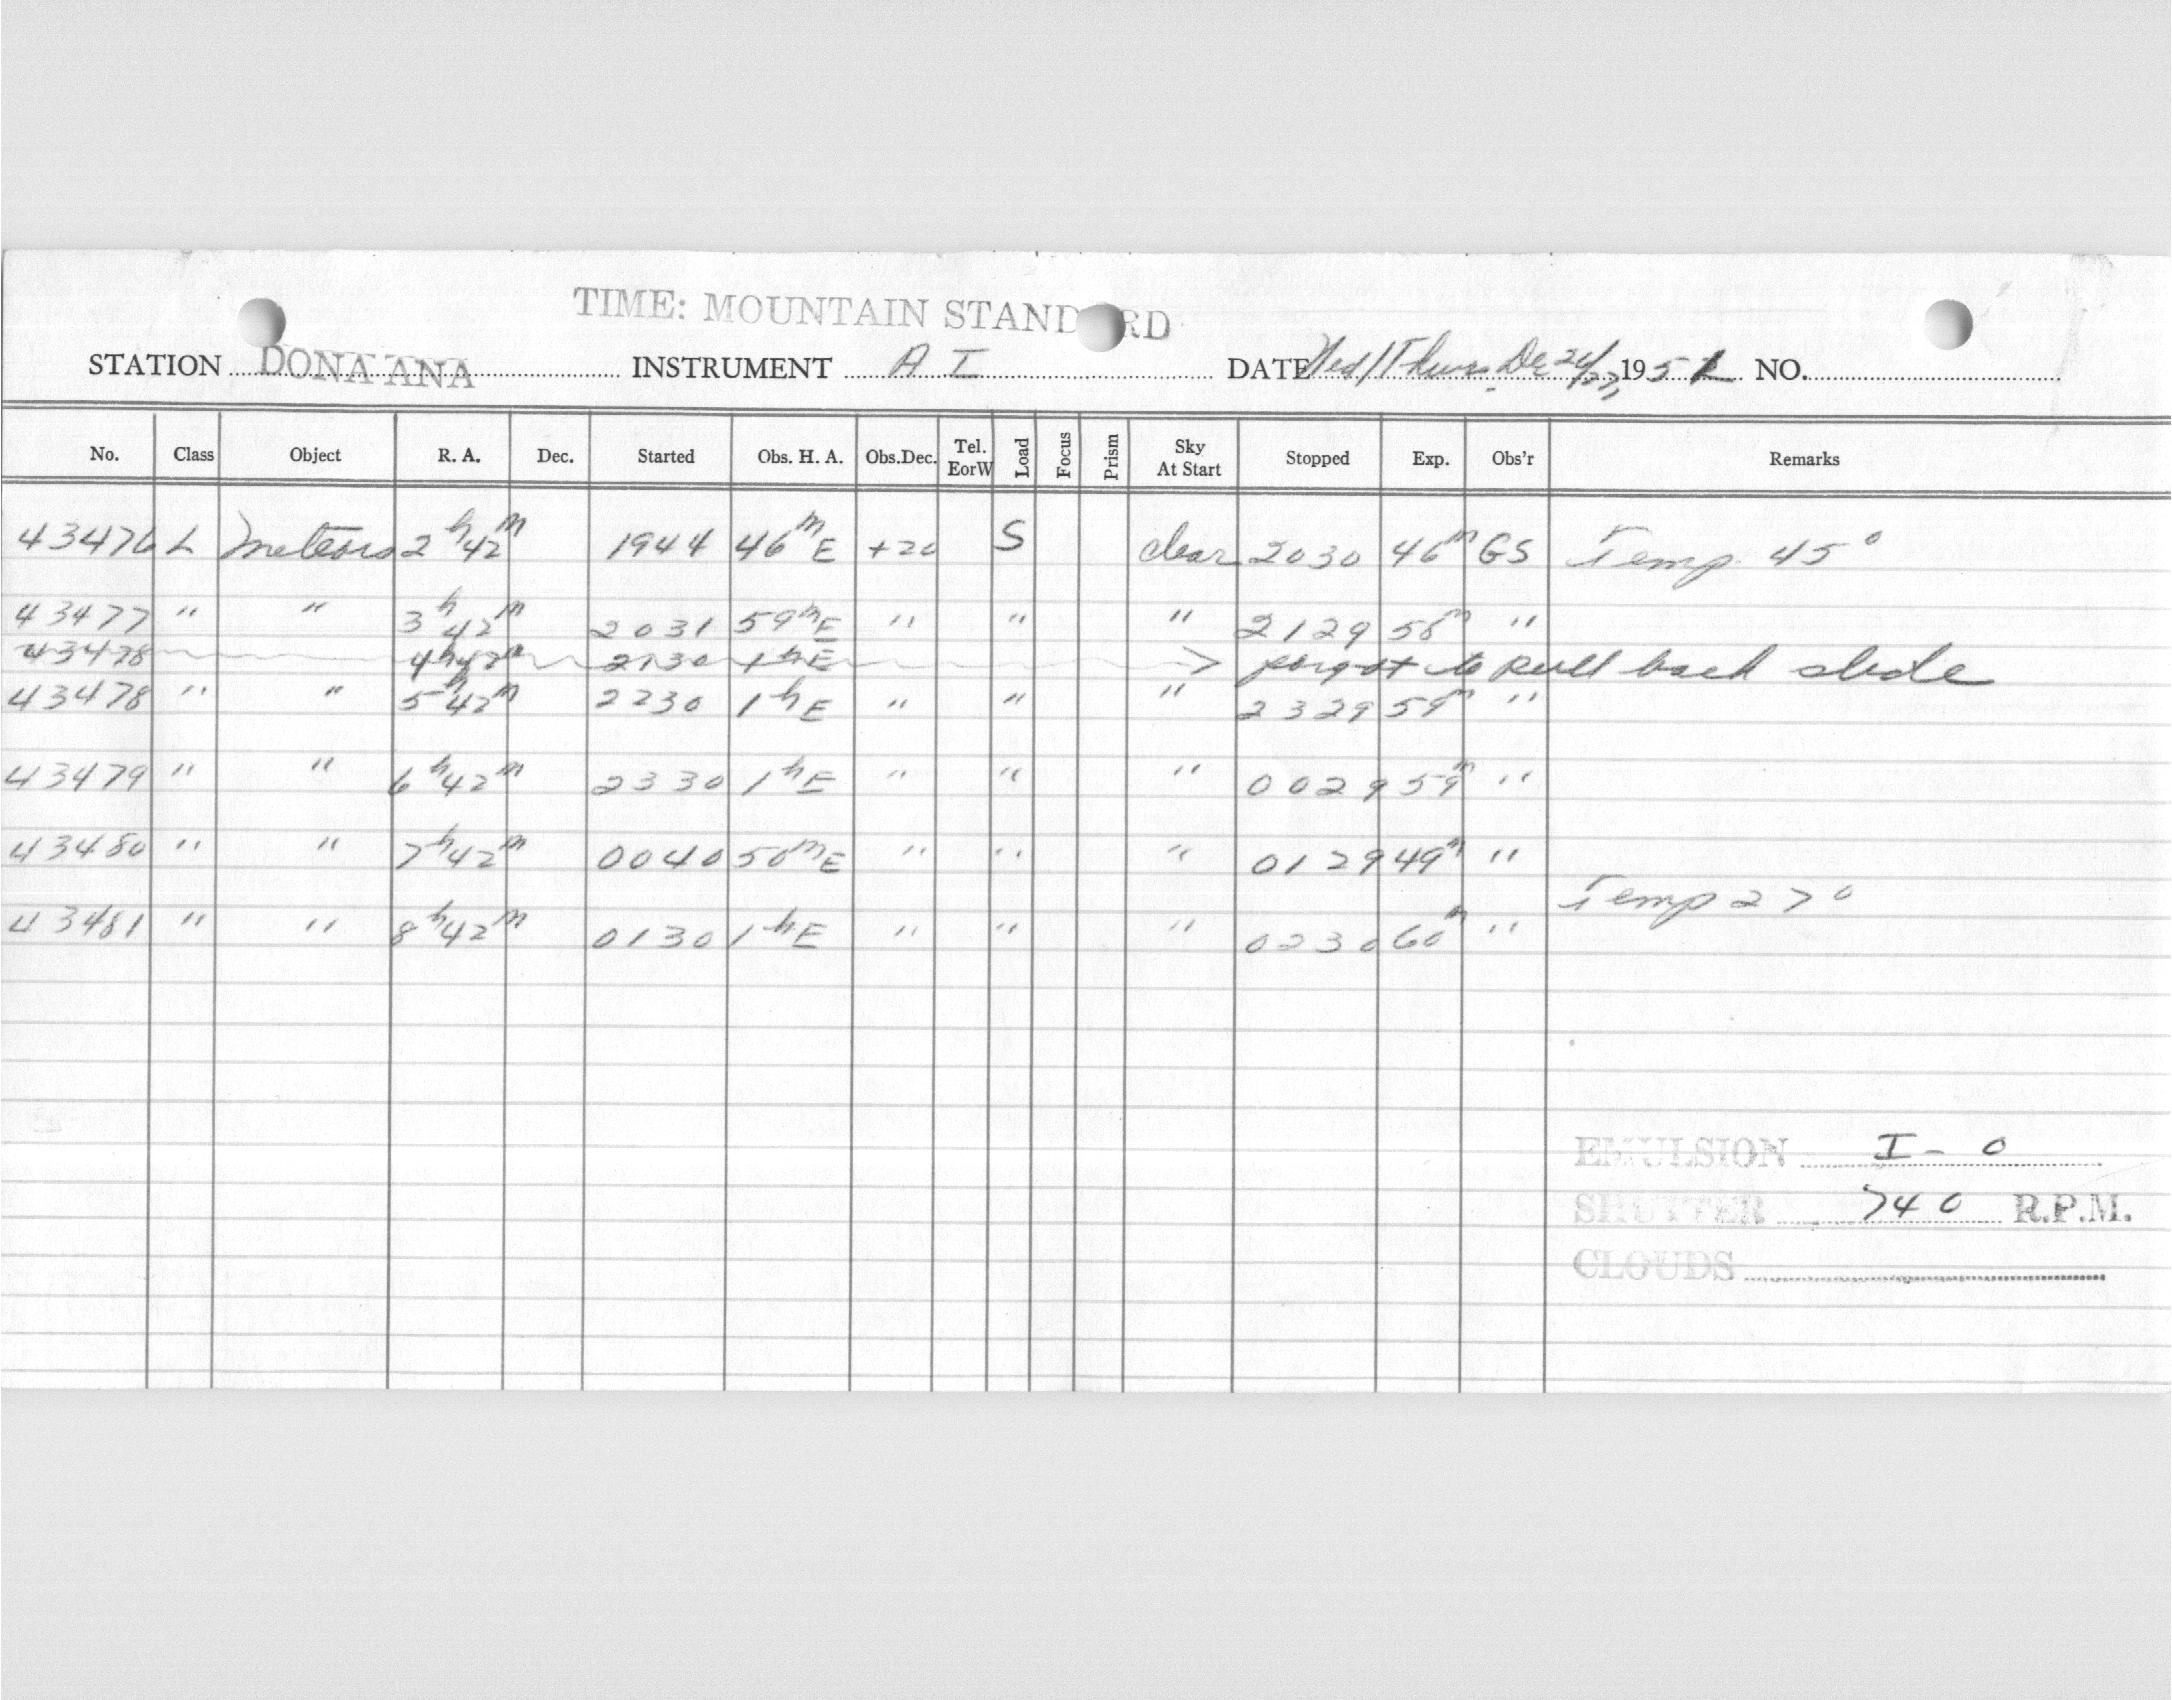 TIME: MOUNTAIN STANDARD
STATION DONA ANA INSTRUMENT A I DATE Wed/Thurs. Dec 26/27, 195 NO.
No. Class Object R. A. Dec. Started Obs. H. A. Obs.Dec. Tel. EorW Load Focus Prism Sky At Start Stopped Exp. Obs'r Remarks
43476 L meteors 2h 42m 1944 46m E +20 S clear 2030 46m GS Temp. 45°
43477 " " 3h 42m 2031 59m E " " " 2129 58m "
43478 4h 42m 2130 1h E forgot to pull back slide
43478 " " 5h 42m 2230 1h E " " " 2329 59m "
43479 " " 6h 42m 2330 1h E " " " 0029 59m "
43480 " " 7h 42m 0040 50m E " " " 0129 49m "
Temp 27°
43481 " " 8h 42m 0130 1h E " " " 0230 60m "
EMULSION I - O
SHUTTER 740 R.P.M.
CLOUDS